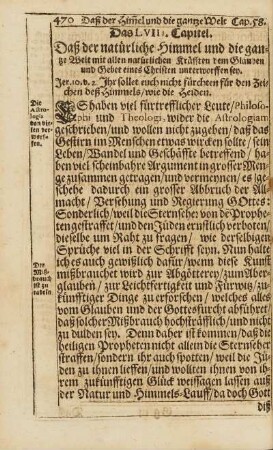 470 Daß der Him̃el und die gantze Welt Cap. 58.
Das LVIII. Capitel.
Daß der natürliche Himmel und die gan-
tze Welt mit allen natürlichen Kräfften dem Glauben
und Gebet eines Christen unterworffen sey.
Jer. 10. v. 2. Ihr sollet euch nicht fürchten für den Zei-
chen deß Himmels, wie die Heiden.
Die
Astro-
logia
von vie-
len ver-
worf-
fen.
ES haben viel fürtrefflicher Leute, Philoso-
phi und Theologi, wider die Astrologiam
geschrieben, und wollen nicht zugeben, daß das
Gestirn im Menschen etwas wircken solte, sein
Leben, Wandel und Geschäffte betreffend, ha-
ben viel scheinbahre Argumenta in grosser Men-
ge zusammen getragen, und vermeinen, es ge-
schehe dadurch ein grosser Abbruch der All-
macht, Versehung und Regierung GOttes:
Sonderlich, weil die Sternseher von dē Prophe-
ten gestraffet, und den Jüden ernstlich verboten,
dieselbe um Raht zu fragen, wie derselbigen
Sprüche viel in der Schrifft seyn. Nun halte
ich es auch gewißlich dafür, wenn diese Kunst
Der
Miß-
brauch
ist zu
tadeln.
mißbrauchet wird zur Abgötterey, zum Aber-
glauben, zur Leichtfertigkeit und Fürwitz, zu-
künfftiger Dinge zu erforschen, welches alles
vom Glauben und der Gottesfurcht abführet,
daß solcher Mißbrauch hochsträfflich, und nicht
zu dulden sey. Denn daher ist kommen, daß die
heiligen Propheten nicht allein die Sternseher
straffen, sondern ihr auch spotten, weil die Jü-
den zu ihnen lieffen, und wollten ihnen von ih-
rem zukünfftigen Glück weissagen lassen aus
der Natur und Himmels-Lauff, da doch Gott
diß